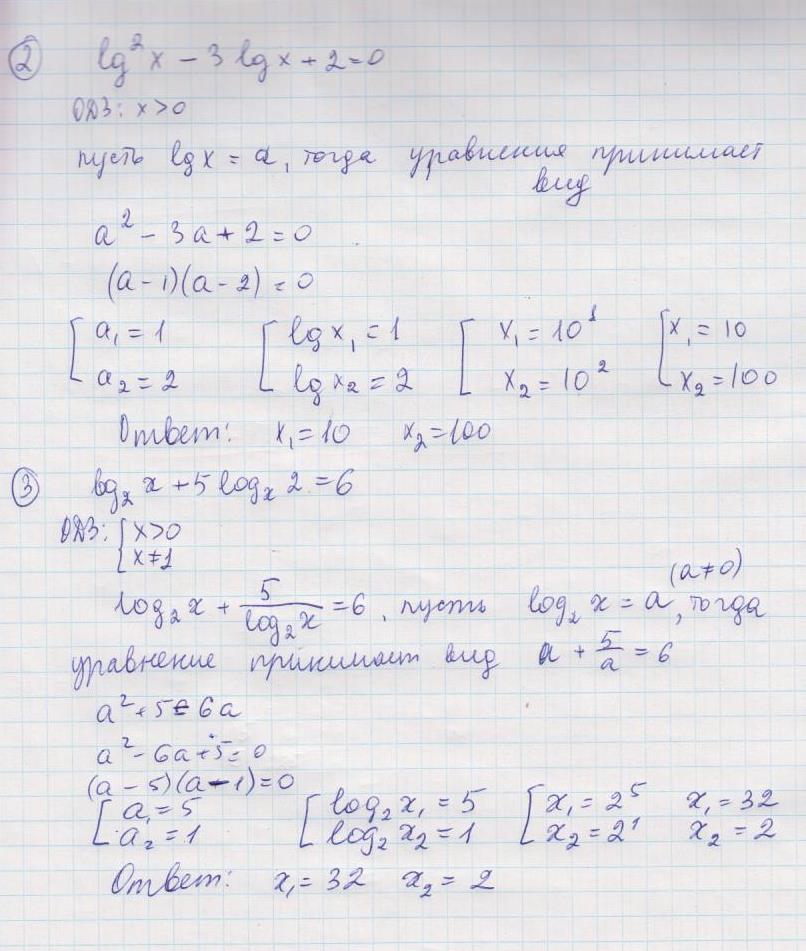 ② lg²x - 3 lgx + 2 = 0
ОДЗ: x > 0
пусть lgx = a, тогда уравнения принимает
вид
a² - 3a + 2 = 0
(a - 1)(a - 2) = 0
[ a₁ = 1 [ lgx₁ = 1 [ x₁ = 10¹ [ x₁ = 10
a₂ = 2 lgx₂ = 2 x₂ = 10² x₂ = 100
Ответ: x₁ = 10 x₂ = 100
③ log₂x + 5 logₓ2 = 6
ОДЗ: { x > 0
x ≠ 1
(a ≠ 0)
log₂x + 5/log₂x = 6, пусть log₂x = a, тогда
уравнение принимает вид a + 5/a = 6
a² + 5 = 6a
a² - 6a + 5 = 0
(a - 5)(a - 1) = 0
[ a₁ = 5 [ log₂x₁ = 5 [ x₁ = 2⁵ x₁ = 32
a₂ = 1 log₂x₂ = 1 x₂ = 2¹ x₂ = 2
Ответ: x₁ = 32 x₂ = 2